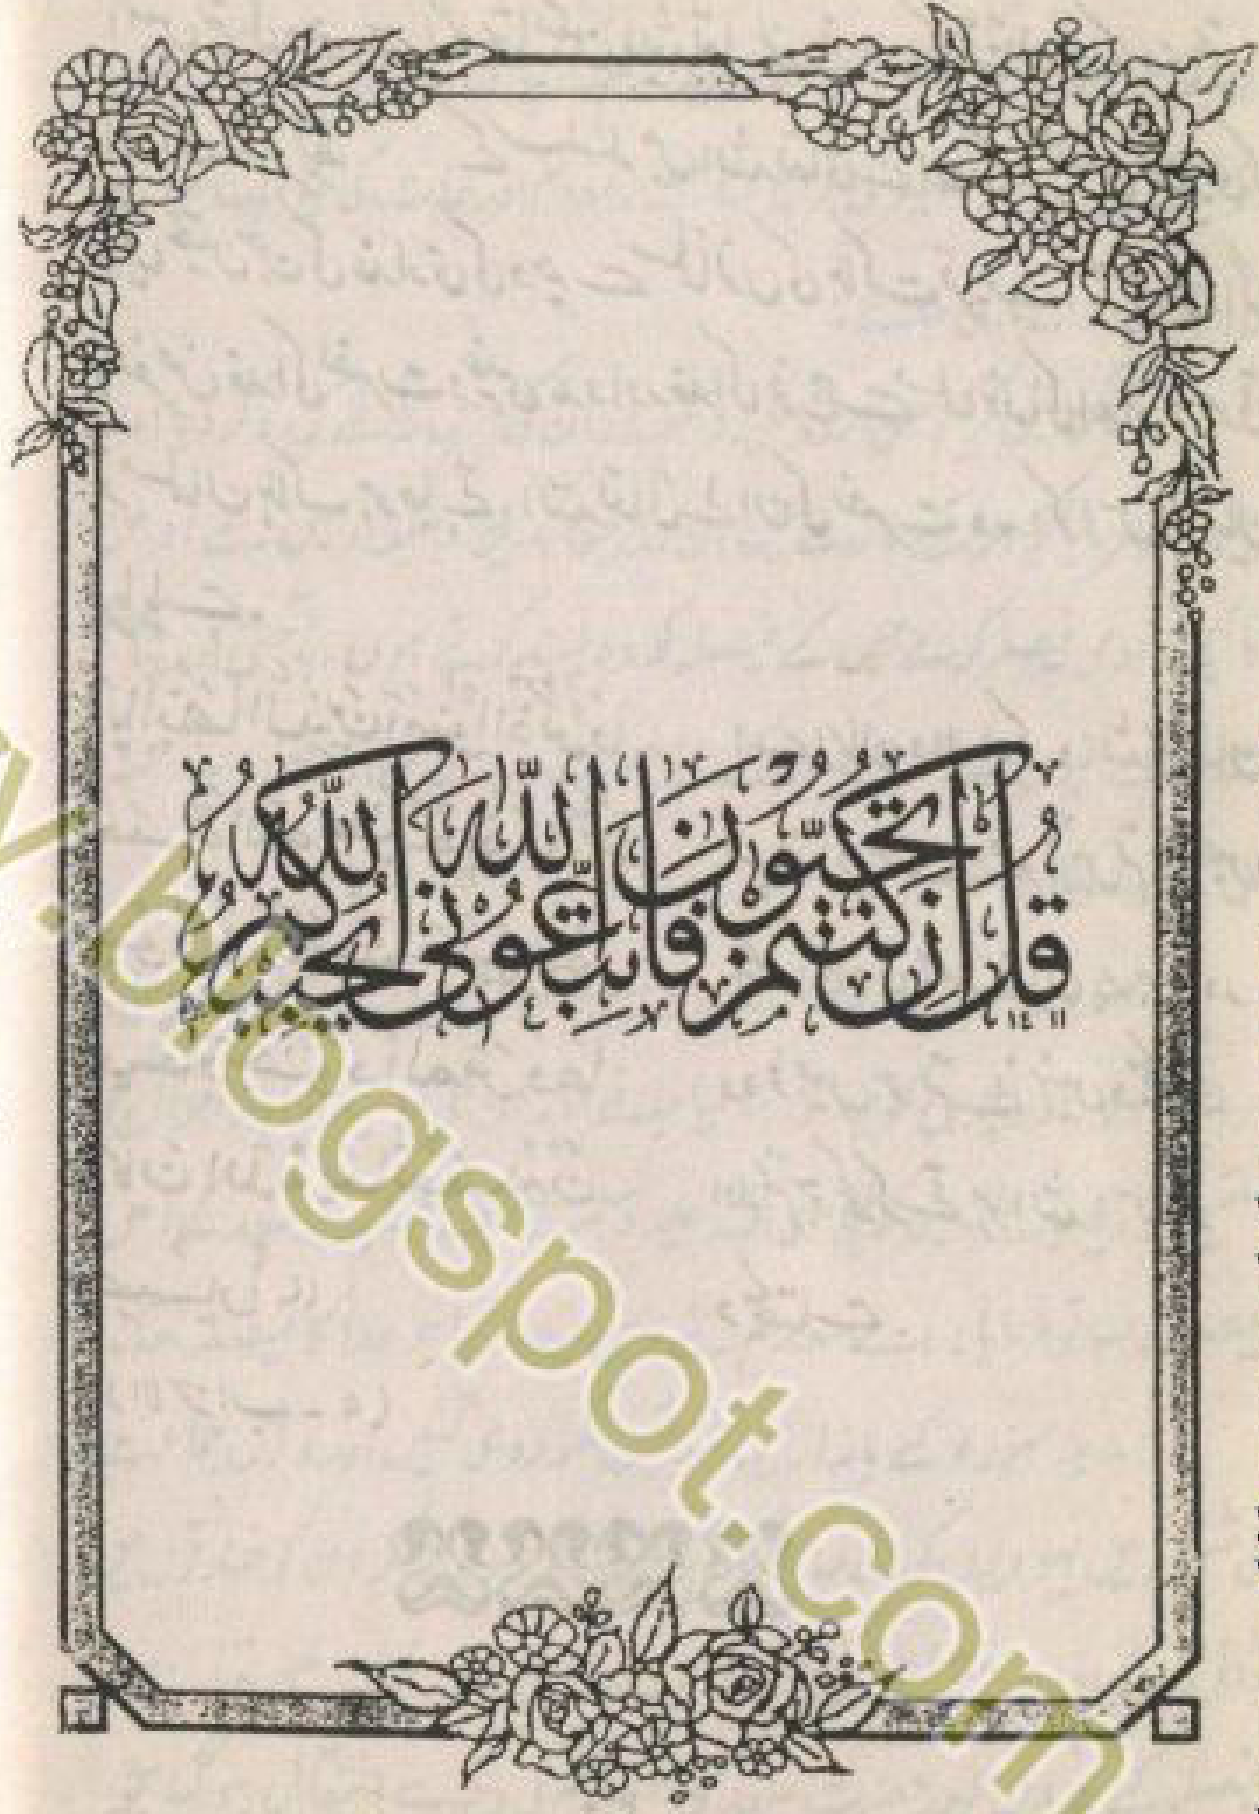 قُلْ إِنْ كُنْتُمْ تُحِبُّونَ اللَّهَ فَاتَّبِعُونِي يُحْبِبْكُمُ اللَّهُ
.blogspot.com